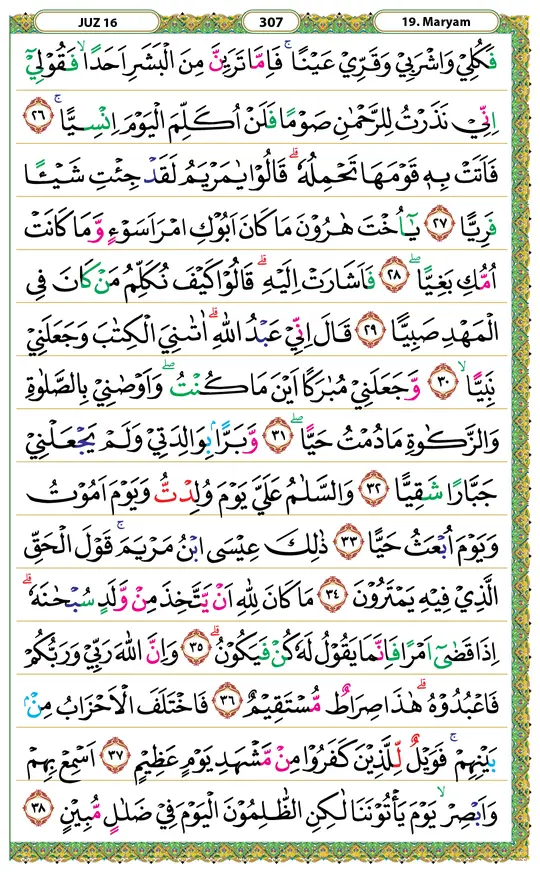 JUZ 16
307
19. Maryam
فَكُلِيْ وَاشْرَبِيْ وَقَرِّيْ عَيْنًا ۚ فَاِمَّا تَرَيِنَّ مِنَ الْبَشَرِ اَحَدًا ۙ فَقُوْلِيْٓ
اِنِّيْ نَذَرْتُ لِلرَّحْمٰنِ صَوْمًا فَلَنْ اُكَلِّمَ الْيَوْمَ اِنْسِيًّا ۚ ٢٦
فَاَتَتْ بِهٖ قَوْمَهَا تَحْمِلُهٗ ۗ قَالُوْا يٰمَرْيَمُ لَقَدْ جِئْتِ شَيْـًٔا
فَرِيًّا ٢٧ يٰٓاُخْتَ هٰرُوْنَ مَا كَانَ اَبُوْكِ امْرَاَ سَوْءٍ وَّمَا كَانَتْ
اُمُّكِ بَغِيًّا ۖ ٢٨ فَاَشَارَتْ اِلَيْهِ ۗ قَالُوْا كَيْفَ نُكَلِّمُ مَنْ كَانَ فِى
الْمَهْدِ صَبِيًّا ٢٩ قَالَ اِنِّيْ عَبْدُ اللّٰهِ ۗ اٰتٰىنِيَ الْكِتٰبَ وَجَعَلَنِيْ
نَبِيًّا ۙ ٣٠ وَّجَعَلَنِيْ مُبٰرَكًا اَيْنَ مَا كُنْتُ ۖ وَاَوْصٰنِيْ بِالصَّلٰوةِ
وَالزَّكٰوةِ مَا دُمْتُ حَيًّا ۖ ٣١ وَّبَرًّا ۢ بِوَالِدَتِيْ وَلَمْ يَجْعَلْنِيْ
جَبَّارًا شَقِيًّا ٣٢ وَالسَّلٰمُ عَلَيَّ يَوْمَ وُلِدْتُّ وَيَوْمَ اَمُوْتُ
وَيَوْمَ اُبْعَثُ حَيًّا ٣٣ ذٰلِكَ عِيْسَى ابْنُ مَرْيَمَ ۚ قَوْلَ الْحَقِّ
الَّذِيْ فِيْهِ يَمْتَرُوْنَ ٣٤ مَا كَانَ لِلّٰهِ اَنْ يَّتَّخِذَ مِنْ وَّلَدٍ سُبْحٰنَهٗ ۗ
اِذَا قَضٰىٓ اَمْرًا فَاِنَّمَا يَقُوْلُ لَهٗ كُنْ فَيَكُوْنُ ۗ ٣٥ وَاِنَّ اللّٰهَ رَبِّيْ وَرَبُّكُمْ
فَاعْبُدُوْهُ ۗ هٰذَا صِرَاطٌ مُّسْتَقِيْمٌ ٣٦ فَاخْتَلَفَ الْاَحْزَابُ مِنْ ۢ
بَيْنِهِمْ ۚ فَوَيْلٌ لِّلَّذِيْنَ كَفَرُوْا مِنْ مَّشْهَدِ يَوْمٍ عَظِيْمٍ ٣٧ اَسْمِعْ بِهِمْ
وَاَبْصِرْ ۙ يَوْمَ يَأْتُوْنَنَا لٰكِنِ الظّٰلِمُوْنَ الْيَوْمَ فِيْ ضَلٰلٍ مُّبِيْنٍ ٣٨